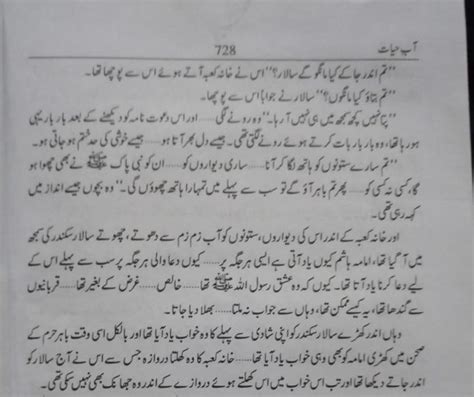 آب حیات
728
”تم اندر جا کے کیا مانگو گے سالار؟“ اس نے خانہ کعبہ آتے ہوئے اس سے پوچھا تھا۔
”تم بتاؤ کیا مانگوں؟“ سالار نے جواباً اس سے پوچھا۔
”پتا نہیں کچھ سمجھ میں ہی نہیں آ رہا۔“ وہ رونے لگی......اور اس دعوت نامہ کو دیکھنے کے بعد بار بار یہی
ہو رہا تھا، وہ بار بار بات کرتے ہوئے رونے لگتی تھی۔......جیسے دل بھر آتا ہو......جیسے خوشی کی حد ختم ہو جاتی ہو۔
”تم سارے ستونوں کو ہاتھ لگا کر آنا......ساری دیواروں کو......ان کو نبی پاک ﷺ نے بھی چھوا ہو
گا، کسی نہ کسی کو......پھر تم باہر آؤ گے تو سب سے پہلے میں تمہارا ہاتھ چھوؤں گی۔“ وہ بچوں جیسے انداز میں
کہہ رہی تھی۔
اور خانہ کعبہ کے اندر اس کی دیواروں، ستونوں کو آب زم زم سے دھوتے، چھوتے سالار سکندر کی سمجھ
میں آ گیا تھا، امامہ ہاشم کیوں یاد آتی ہے ایسی ہر جگہ پر......کیوں دعا والی ہر جگہ پر سب سے پہلے اس کے
لیے دعا کرنا یاد آتا تھا۔ کیوں کہ وہ عشق رسول اللہ ﷺ تھا......خالص......غرض کے بغیر تھا......قربانیوں
سے گندھا تھا، یہ کیسے ممکن تھا، وہاں سے جواب نہ ملتا......بھلا دیا جاتا۔
وہاں اندر کھڑے سالار سکندر کو اپنی شادی سے پہلے کا وہ خواب یاد آیا تھا اور بالکل اسی وقت باہر حرم کے
صحن میں کھڑی امامہ کو بھی وہی خواب یاد آیا تھا......خانہ کعبہ کا وہ کھلتا دروازہ جس سے اس نے آج سالار کو
جاتے دیکھا تھا اور تب اس خواب میں اس کھلتے ہوئے دروازے کے اندر وہ جھانک بھی نہیں سکی تھی۔